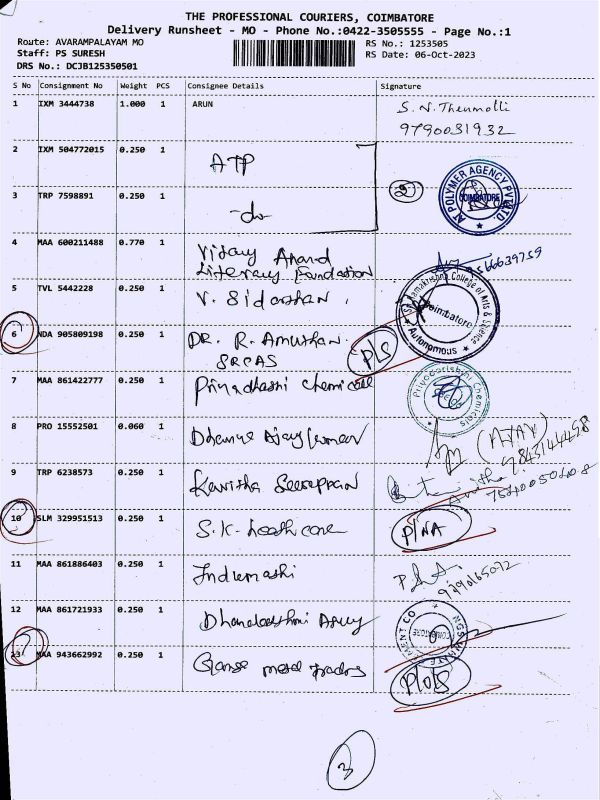 THE PROFESSIONAL COURIERS, COIMBATORE
Delivery Runsheet - MO - Phone No.:0422-3505555 - Page No.:1
Route: AVARAMPALAYAM MO RS No.: 1253505
Staff: PS SURESH RS Date: 06-Oct-2023
DRS No.: DCJB125350501
S No Consignment No Weight PCS Consignee Details Signature
1 IXM 3444738 1.000 1 ARUN S. N.
9790031932
2 IXM 504772015 0.250 1 ATP
3 TRP 7598891 0.250 1 -do 2 AT POLYMER AGENCY PVT LTD. COIMBATORE
4 MAA 600211488 0.770 1 Vijay Anand
Literary Foundation 9566639759
5 TVL 5442228 0.250 1 V. Sidarshan. Ramakrishna College of Arts & Science Coimbatore Autonomous
6 NDA 905809198 0.250 1 DR. R. Amuthan. P/S
SRCAS
7 MAA 861422777 0.250 1 Priyadharshi Chemicals Priyadarishni Chemicals
8 PRO 15552501 0.060 1 Dhanya Ajay Kumar (AJAY)
9843144498
9 TRP 6238573 0.250 1 Kavitha
10 SLM 329951513 0.250 1 S.K. health care P/NA
11 MAA 861886403 0.250 1 Indumashi
12 MAA 861721933 0.250 1 Dhanalakshmi COIMBATORE
13 MAA 943662992 0.250 1 metal traders P/O/S
3